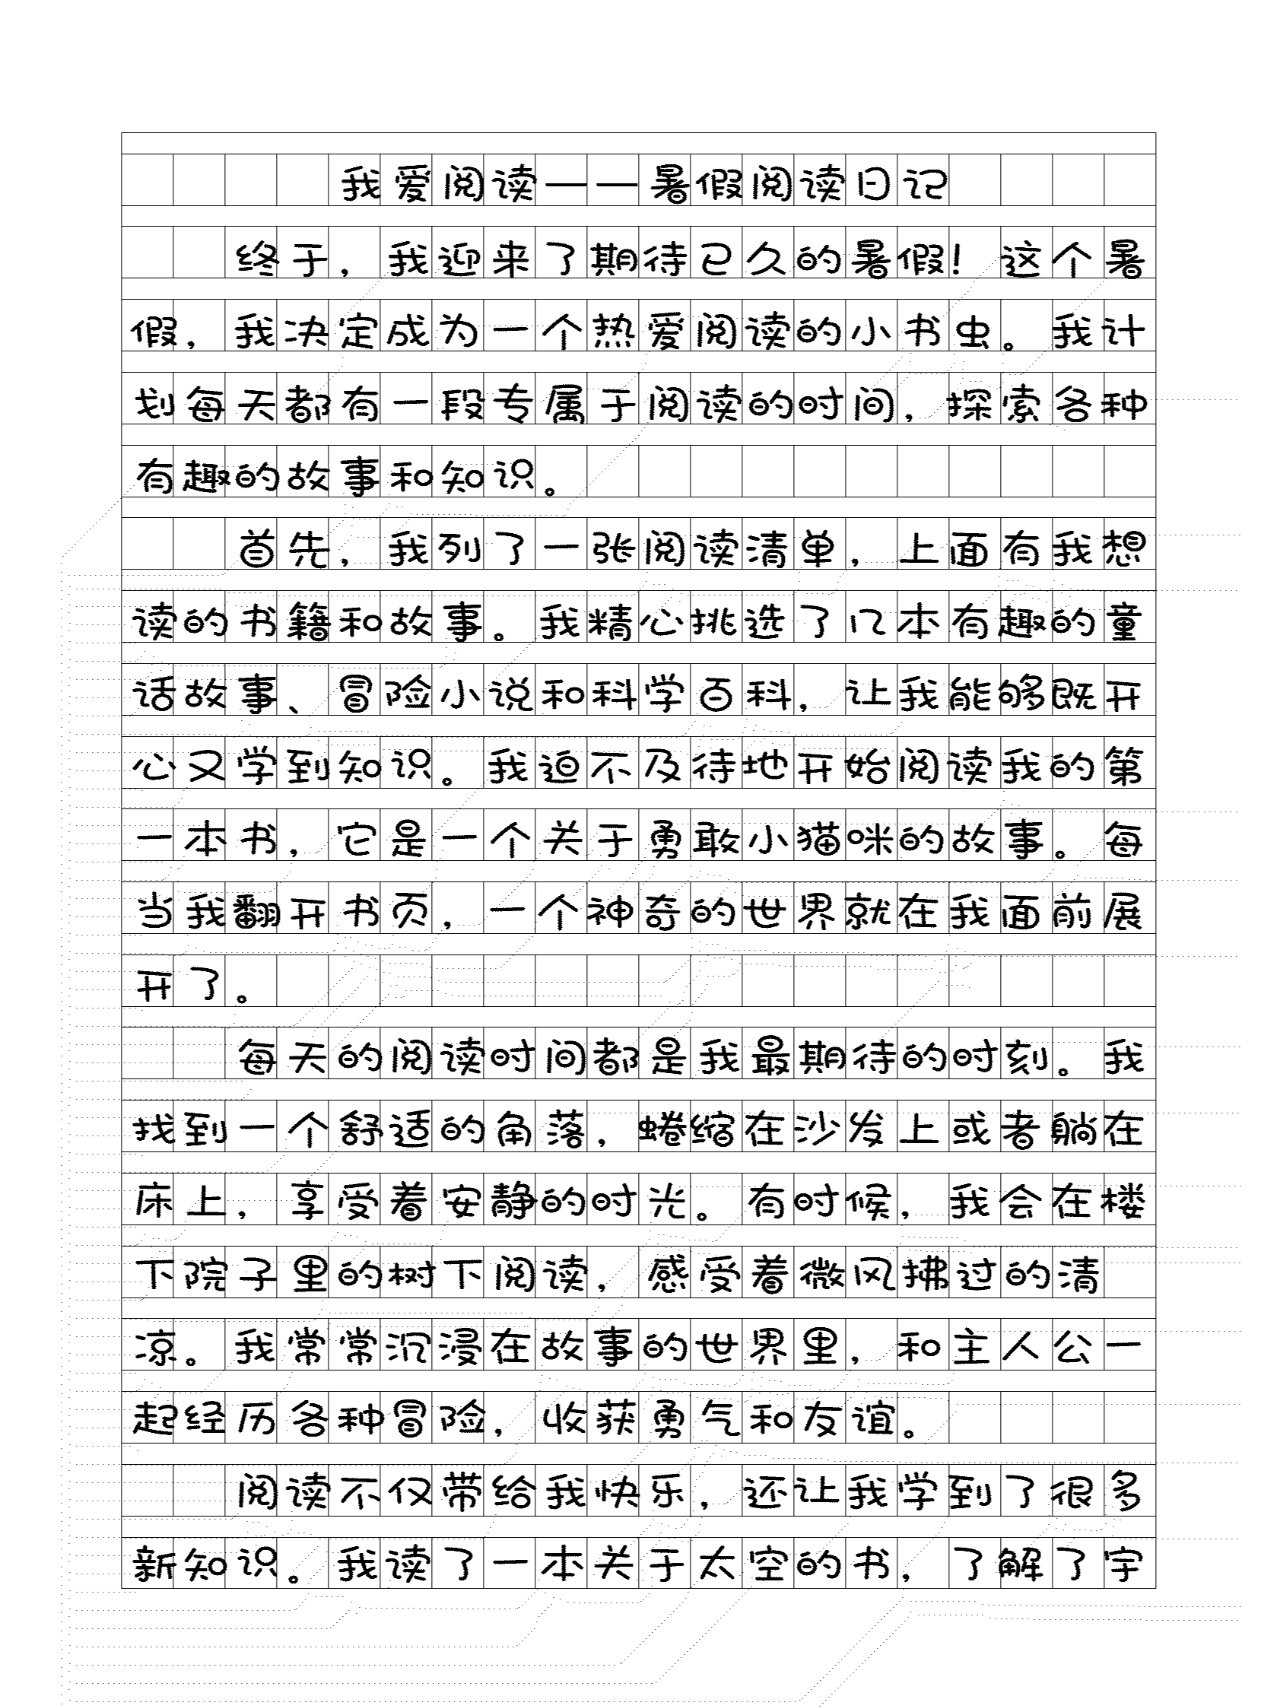 我爱阅读——暑假阅读日记
终于，我迎来了期待已久的暑假！这个暑
假，我决定成为一个热爱阅读的小书虫。我计
划每天都有一段专属于阅读的时间，探索各种
有趣的故事和知识。
首先，我列了一张阅读清单，上面有我想
读的书籍和故事。我精心挑选了几本有趣的童
话故事、冒险小说和科学百科，让我能够既开
心又学到知识。我迫不及待地开始阅读我的第
一本书，它是一个关于勇敢小猫咪的故事。每
当我翻开书页，一个神奇的世界就在我面前展
开了。
每天的阅读时间都是我最期待的时刻。我
找到一个舒适的角落，蜷缩在沙发上或者躺在
床上，享受着安静的时光。有时候，我会在楼
下院子里的树下阅读，感受着微风拂过的清
凉。我常常沉浸在故事的世界里，和主人公一
起经历各种冒险，收获勇气和友谊。
阅读不仅带给我快乐，还让我学到了很多
新知识。我读了一本关于太空的书，了解了宇